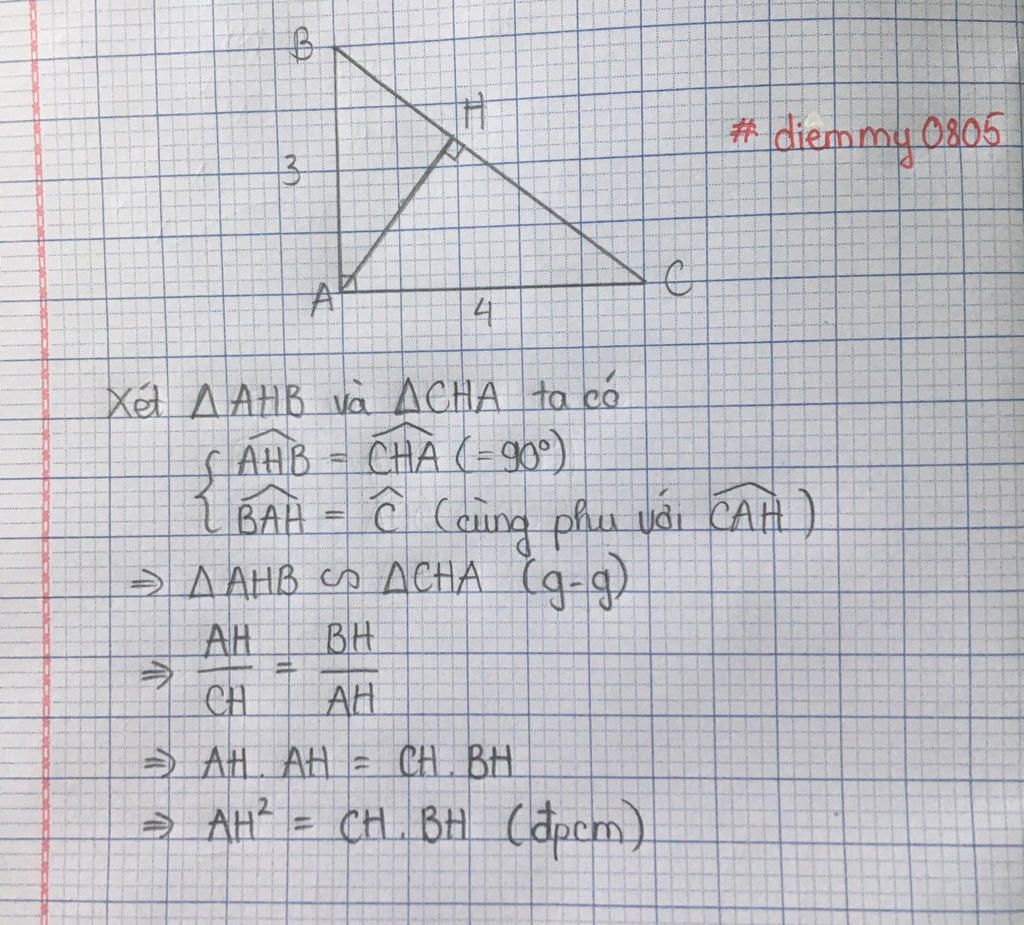 B
H
# diemmy0805
3
A
4
C
Xét Δ AHB và ΔCHA ta có
{ \widehat{AHB} = \widehat{CHA} (= 90°)
\widehat{BAH} = \widehat{C} (cùng phụ với \widehat{CAH})
⇒ Δ AHB ∽ ΔCHA (g-g)
⇒ AH/CH = BH/AH
⇒ AH. AH = CH. BH
⇒ AH² = CH. BH (đpcm)